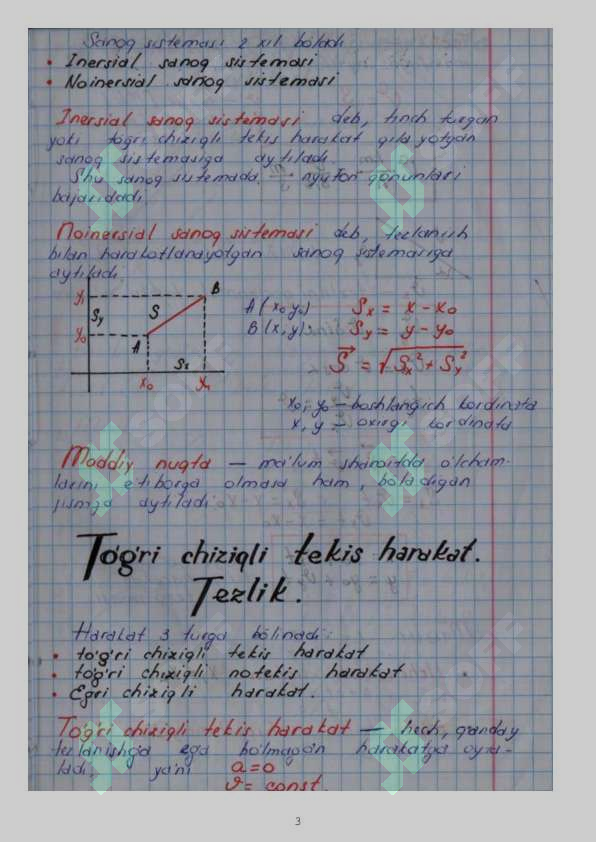 Sanoq sistemasi 2 xil bo'ladi
• Inersial sanoq sistemasi
• Noinersial sanoq sistemasi
Inersial sanoq sistemasi deb, tinch turgan
yoki to'g'ri chiziqli tekis harakat qilayotgan
sanoq sistemasiga aytiladi.
Shu sanoq sistemada nyuton qonunlari
bajariladi.
Noinersial sanoq sistemasi deb, tezlanish
bilan harakatlanayotgan sanoq sistemasiga
aytiladi.
y₁ Sy S B
A(x₀ y₀) Sx = x - x₀
y₀ A
B(x, y) Sy = y - y₀
Sx
S⃗ = √Sx² + Sy²
x₀ x₁
x₀, y₀ — boshlang'ich kordinata
x, y — oxirgi kordinata
Moddiy nuqta — ma'lum sharoitda o'lcham-
larini e'tiborga olmasa ham, bo'ladigan
jismga aytiladi.
To'g'ri chiziqli tekis harakat.
Tezlik.
Harakat 3 turga bo'linadi:
• to'g'ri chiziqli tekis harakat
• to'g'ri chiziqli notekis harakat
• Egri chiziqli harakat.
To'g'ri chiziqli tekis harakat — hech, qanday
tezlanishga ega bo'lmagan harakatga ayta-
ladi, ya'ni a=0
ϑ= const.
3